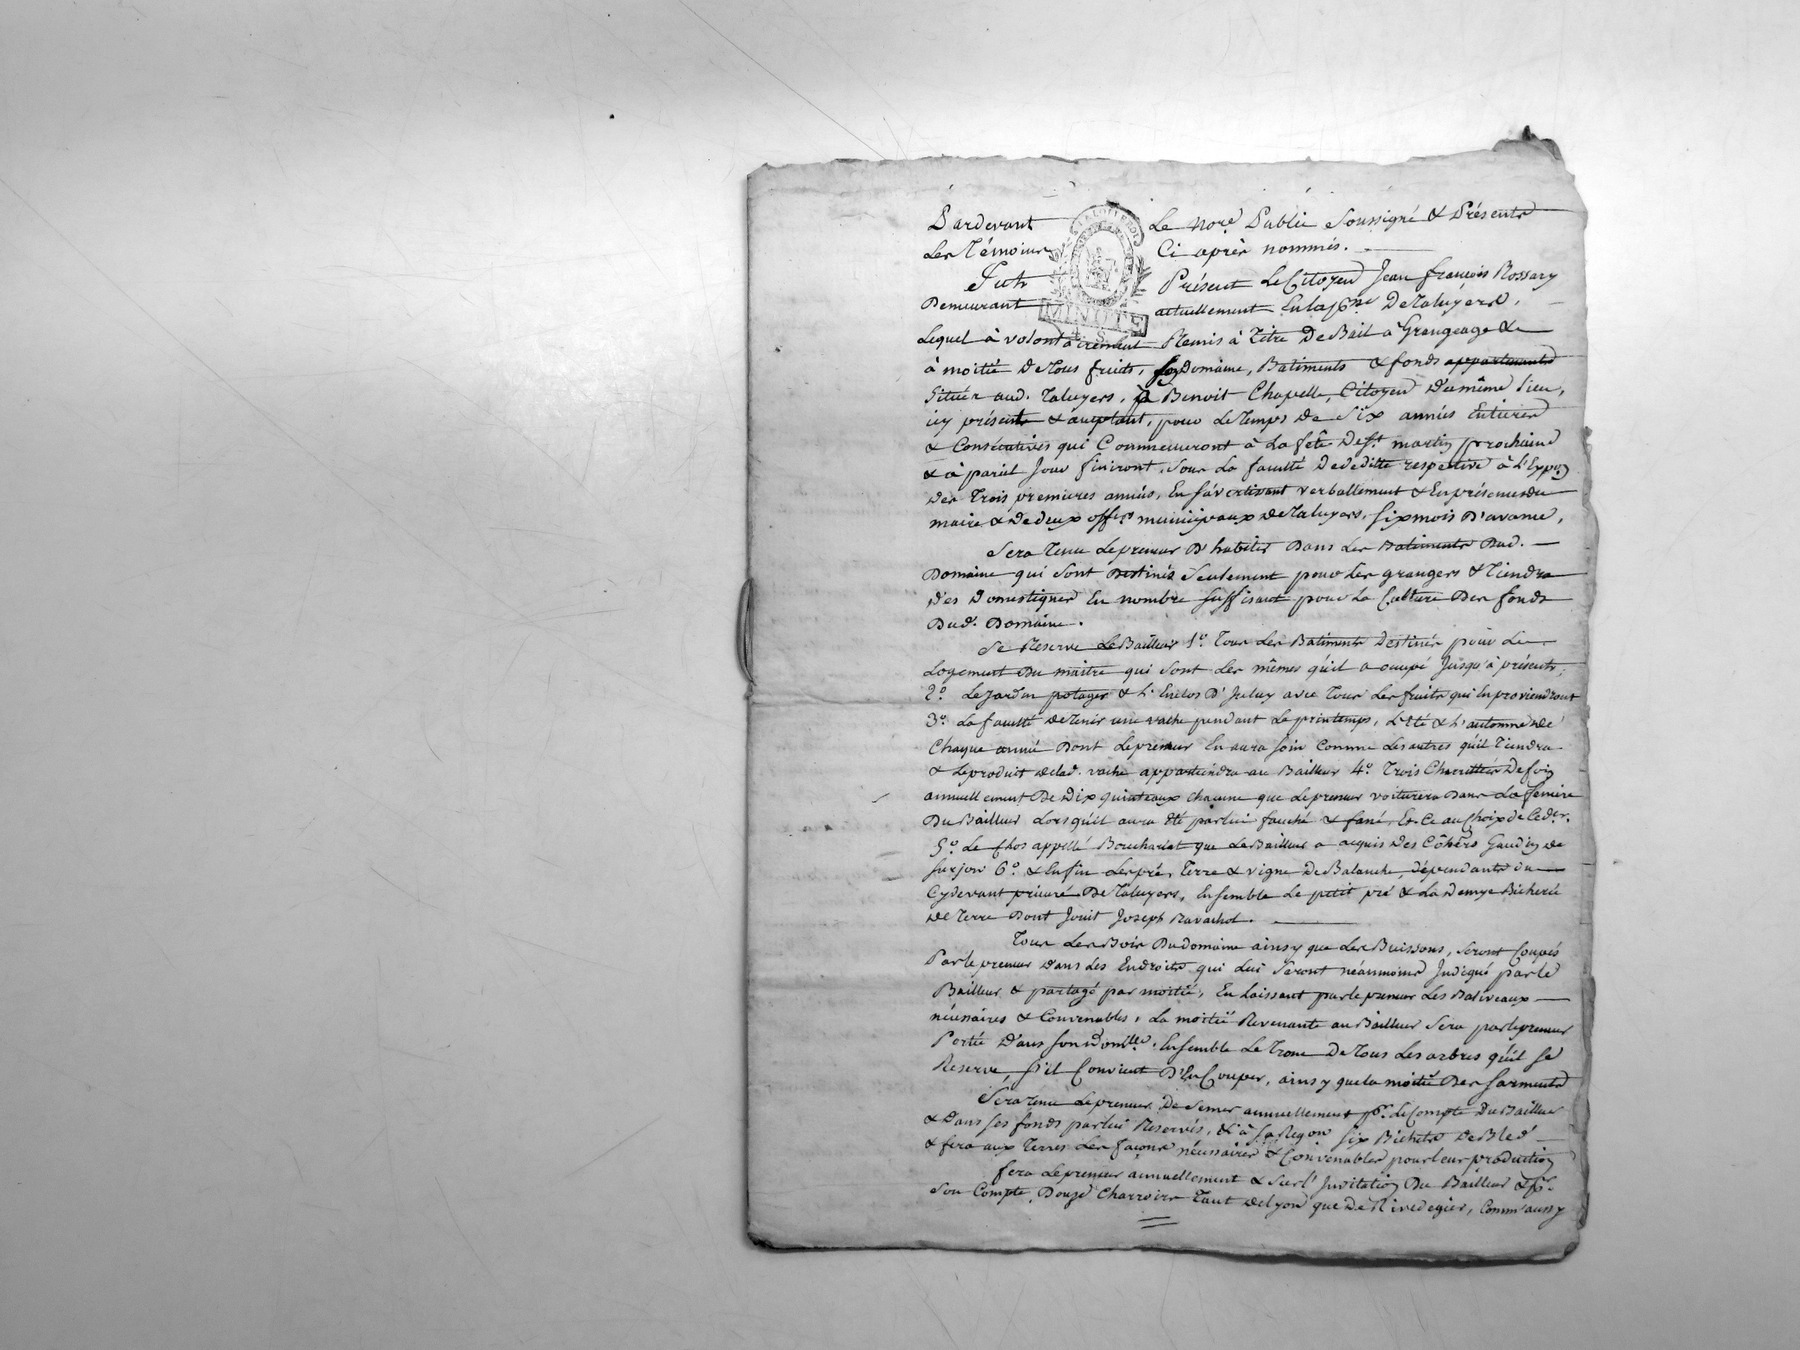 Pardevant Le Nore Public Soussigné & Présents
Les Témoins Ci après nommés.
LA LOI ET LE ROI
Fut Présent Le Citoyen Jean françois Rossary
Demeurant actuellement En la psse De Taluyers,
MINUTE
Lequel à volontairement Remis à Titre De Bail à Grangeage &
à moitié De Tous fruits, Domaine, Batiments & fonds
Situés aud. Taluyers, à Benoit Chapelle, Citoyen Du même Lieu,
icy présent & acceptant, pour Le Temps De Six années Entieres
& Consécutives qui Commenceront à La fête De St. martin prochaine
& à pareil Jour finiront, Sous La faculté De deditte respective à L'Exp.on
Des Trois premieres années, En S'avertissant verballement & En présence du
maire & De deux offers municipaux De Taluyers, Six mois D'avance,
Sera Tenu Le preneur D'habiter Dans Les Batiments Dud.
Domaine qui Sont Destinés Seulement pour Les grangers & Tiendra
Des Domestiques En nombre Suffisant pour La Culture Des fonds
Dud. Domaine.
Se Reserve Le Bailleur 1o. Tous Les Batiments Destinés pour Le
Logement Du maitre qui Sont Les mêmes qu'il a occupé Jusqu'à présent,
2o. Le Jardin potager & L'Enclos avec Tous Les fruits qui En proviendront
3o. La faculté De Tenir une vache pendant Le printemps, L'Eté & L'automne De
Chaque année Dont Le preneur En aura Soin Comme Des autres qu'il Tiendra
& Le produit De lad. vache appartiendra au Bailleur 4o. Trois Charretées De foin
annuellement De Dix quintaux chacune que Le preneur voiturera Dans La feniere
Du Bailleur Lorsqu'il aura Eté par lui fauché & fané, & Ce au Choix de Ce der.
5o. Le Clos appellé Bouchariat que Le Bailleur a acquis Des Cohers Gaudin De
Surjon 6o. & Enfin Les pré, Terre & vigne De Balanche, Dépendants Du
Cydevant prieuré De Taluyers, Ensemble Le petit pré & La Demye Bicherée
De Terre Dont Jouit Joseph Ravachol.
Tous Les Bois Du Domaine ainsy que Les Buissons, Seront Coupés
Par Le preneur Dans Les Endroits qui Lui Seront néanmoins Indiqué par Le
Bailleur & partagé par moitié, En Laissant par le preneur Les Baliveaux
nécessaires & Convenables, La moitié Revenante au Bailleur Sera par le preneur
Portée Dans Son Domlle. Ensemble Le Tronc De Tous Les arbres qu'il Se
Reserve, S'il Convient D'En Couper, ainsy que La moitié Des Sarments
Sera Tenu Le preneur De Semer annuellement pr. Le Compte Du Bailleur
& Dans Ses fonds par lui Reservés, Six Bichets De Bled
& fera aux Terres Les façons nécessaires & Convenables pour Leur production
fera Le preneur annuellement & Sur L'Invitation Du Bailleur & pr.
Son Compte, Douze Charrois Tant De Lyon que De Rivedegier, Comm'aussy